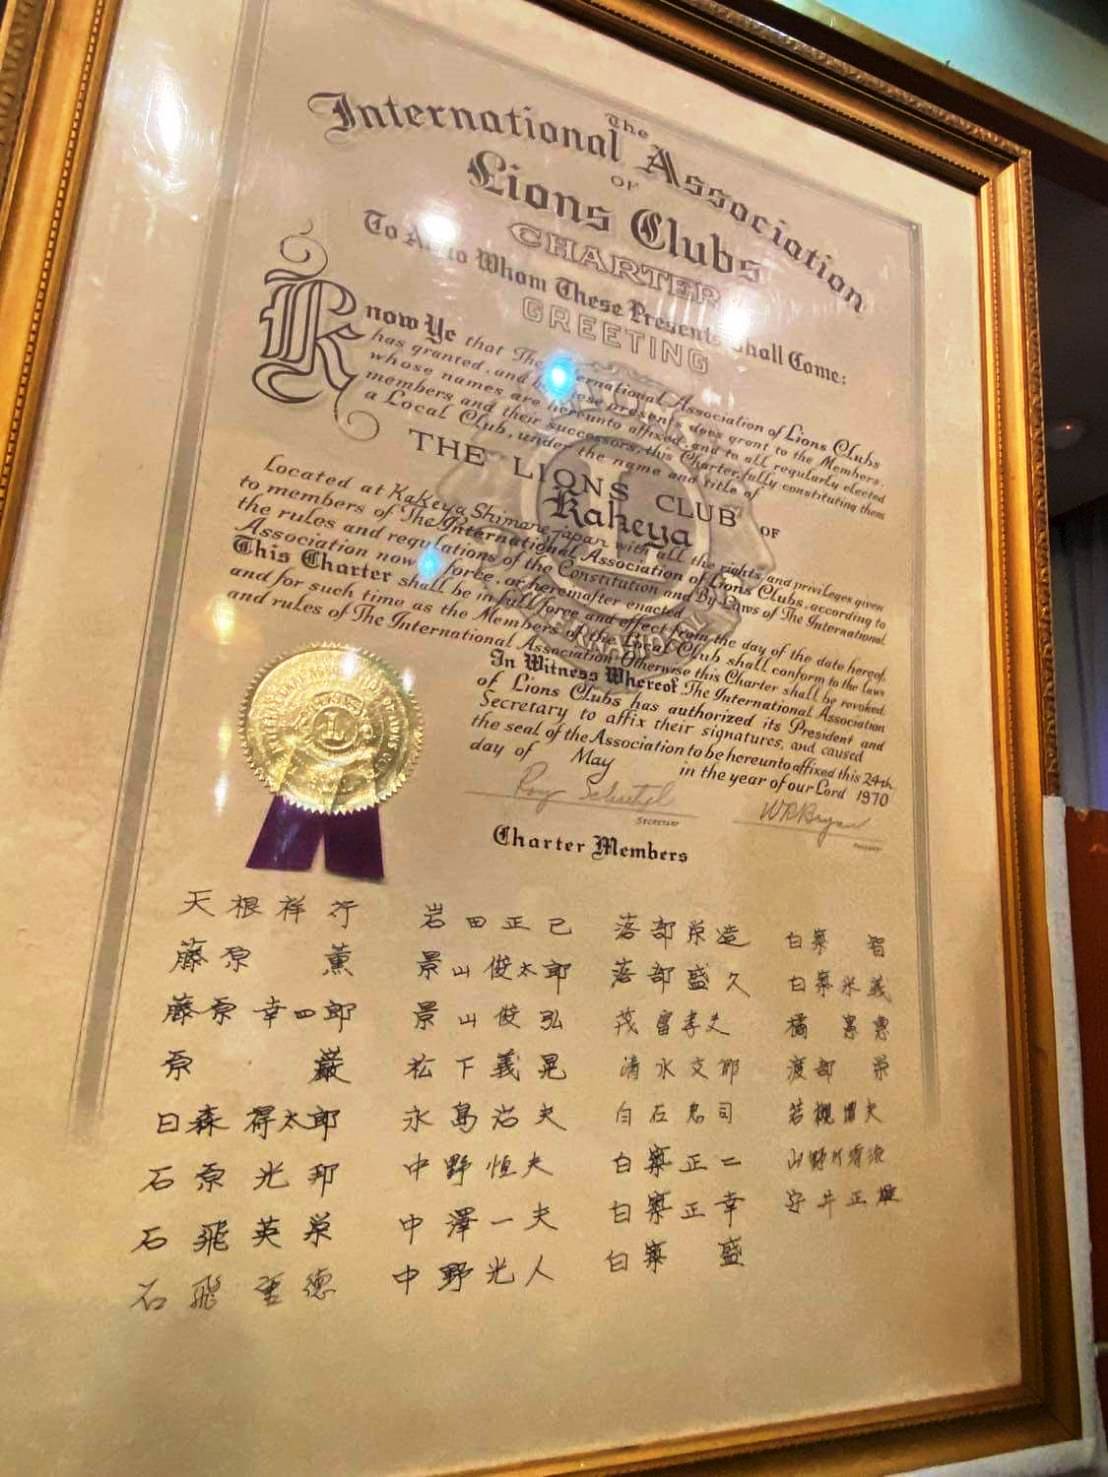 The
International Association
OF
Lions Clubs
CHARTER
To All to Whom These Presents Shall Come:
GREETING
Know Ye that The International Association of Lions Clubs
has granted, and by these presents does grant to the Members,
whose names are hereunto affixed, and to all regularly elected
members and their successors, this Charter, fully constituting them
a Local Club, under the name and title of
THE LIONS CLUB OF
Kakeya
Located at Kakeya Shimane Japan with all the rights and privileges given
to members of The International Association of Lions Clubs, according to
the rules and regulations of the Constitution and By-Laws of The International
Association now in force, or hereafter enacted.
This Charter shall be in full force and effect from the day of the date hereof,
and for such time as the Members of the Local Club shall conform to the laws
and rules of The International Association. Otherwise this Charter shall be revoked.
In Witness Whereof The International Association
of Lions Clubs has authorized its President and
Secretary to affix their signatures, and caused
the seal of the Association to be hereunto affixed this 24th
day of May in the year of our Lord 1970
SECRETARY
PRESIDENT
Charter Members
天根祥行 岩田正己 落部栄造 白築 智
藤原 薫 景山俊太郎 落部盛久 白築米義
藤原幸四郎 景山俊弘
原 巌 松下義晃 清水文郎 渡部 栄
日森得太郎 永島治夫 白石忠司
石原光邦 中野恒夫 白築正二
石飛英栄 中澤一夫 白築正幸 安井正雄
石飛重徳 中野光人 白築 盛